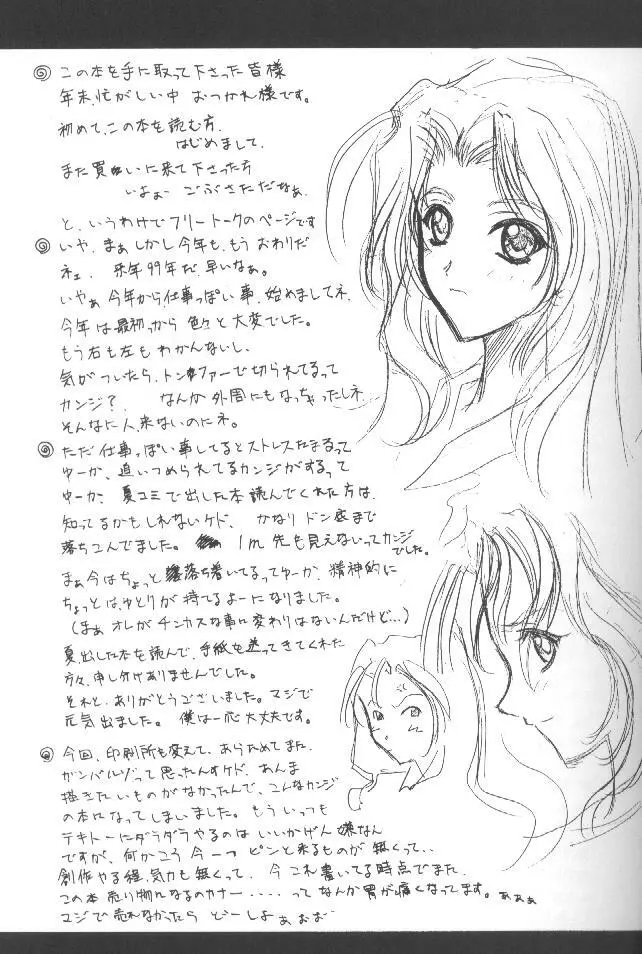 この本を手に取って下さった皆様
年末、忙がしい中 おつかれ様です。
初めて、この本を読む方、
はじめまして、
また買いに来て下さった方
いよぉ ごぶさただなぁ、
と、いうわけでフリートークのページです
いや、まぁしかし今年も、もう おわりだ
ネェ、 来年99年だ早いなぁ。
いやぁ 今年から仕事っぽい事、始めましてネ、
今年は最初っから 色々と大変でした。
もう右も左もわかんないし、
気がついたら、トンファーで切られてるって
カンジ? なんか 外周にもなっちゃったしネ
そんなに人、来ないのにネ。
ただ仕事っぽい事してるとストレスたまるって
ゆーか、追いつめられてるカンジがするって
ゆーか、夏コミで出した本読んでくれた方は、
知ってるかもしれないケド、 かなりドン底まで
落ちこんでました。 1m先も見えないってカンジ
でした。
まぁ今はちょっと落ち着いてるってゆーか、精神的に
ちょっとは、ゆとりが持てるよーになりました。
(まぁ オレがチンカスな事に変わりはないんだけど…)
夏、出した本を読んで、手紙を送ってきてくれた
方々、申し分けありませんでした。
それと、ありがとうございました。マジで
元気出ました。 僕は一応大丈夫です。
今回、印刷所も変えて、あらためてまた、
ガンバルゾって思ったんすケド、あんま
描きたいものがなかったんで、こんなカンジ
の本になってしまいました。 もう いっつも
テキトーにダラダラやるのは いいかげん嫌なん
ですが、何かこう 今一つ ピンと来るものが無くって‥
創作やる程、気力も無くって、 今 これ書いてる時点でまた、
この本 売り物になるのカナー‥‥‥って なんか胃が痛くなってます。あぁぁ
マジで売れなかったら どーしよ ぁぉぉ